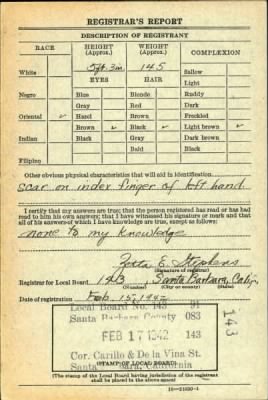 REGISTRAR'S REPORT
DESCRIPTION OF REGISTRANT
RACE HEIGHT (Approx.) WEIGHT (Approx.) COMPLEXION
5 ft. 3 in. 145
White Sallow
EYES HAIR Light
Negro Blue Blonde Ruddy
Gray Red Dark
Oriental ✓ Hazel Brown Freckled
Brown ✓ Black ✓ Light brown ✓
Indian Black Gray Dark brown
Bald Black
Filipino
Other obvious physical characteristics that will aid in identification
scar on index finger of left hand.
I certify that my answers are true; that the person registered has read or has had
read to him his own answers; that I have witnessed his signature or mark and that
all of his answers of which I have knowledge are true, except as follows:
none to my knowledge
E. Stephens
(Signature of registrar)
Registrar for Local Board 143 Santa Barbara, Calif.
(Number) (City or county) (State)
Date of registration Feb. 15, 1942
Local Board No. 143 91
Santa Barbara County 083
FEB 17 1942 143
143
Cor. Carillo & De la Vina St.
Santa Barbara, California
(STAMP OF LOCAL BOARD)
(The stamp of the Local Board having jurisdiction of the registrant
shall be placed in the above space)
16—21630-1